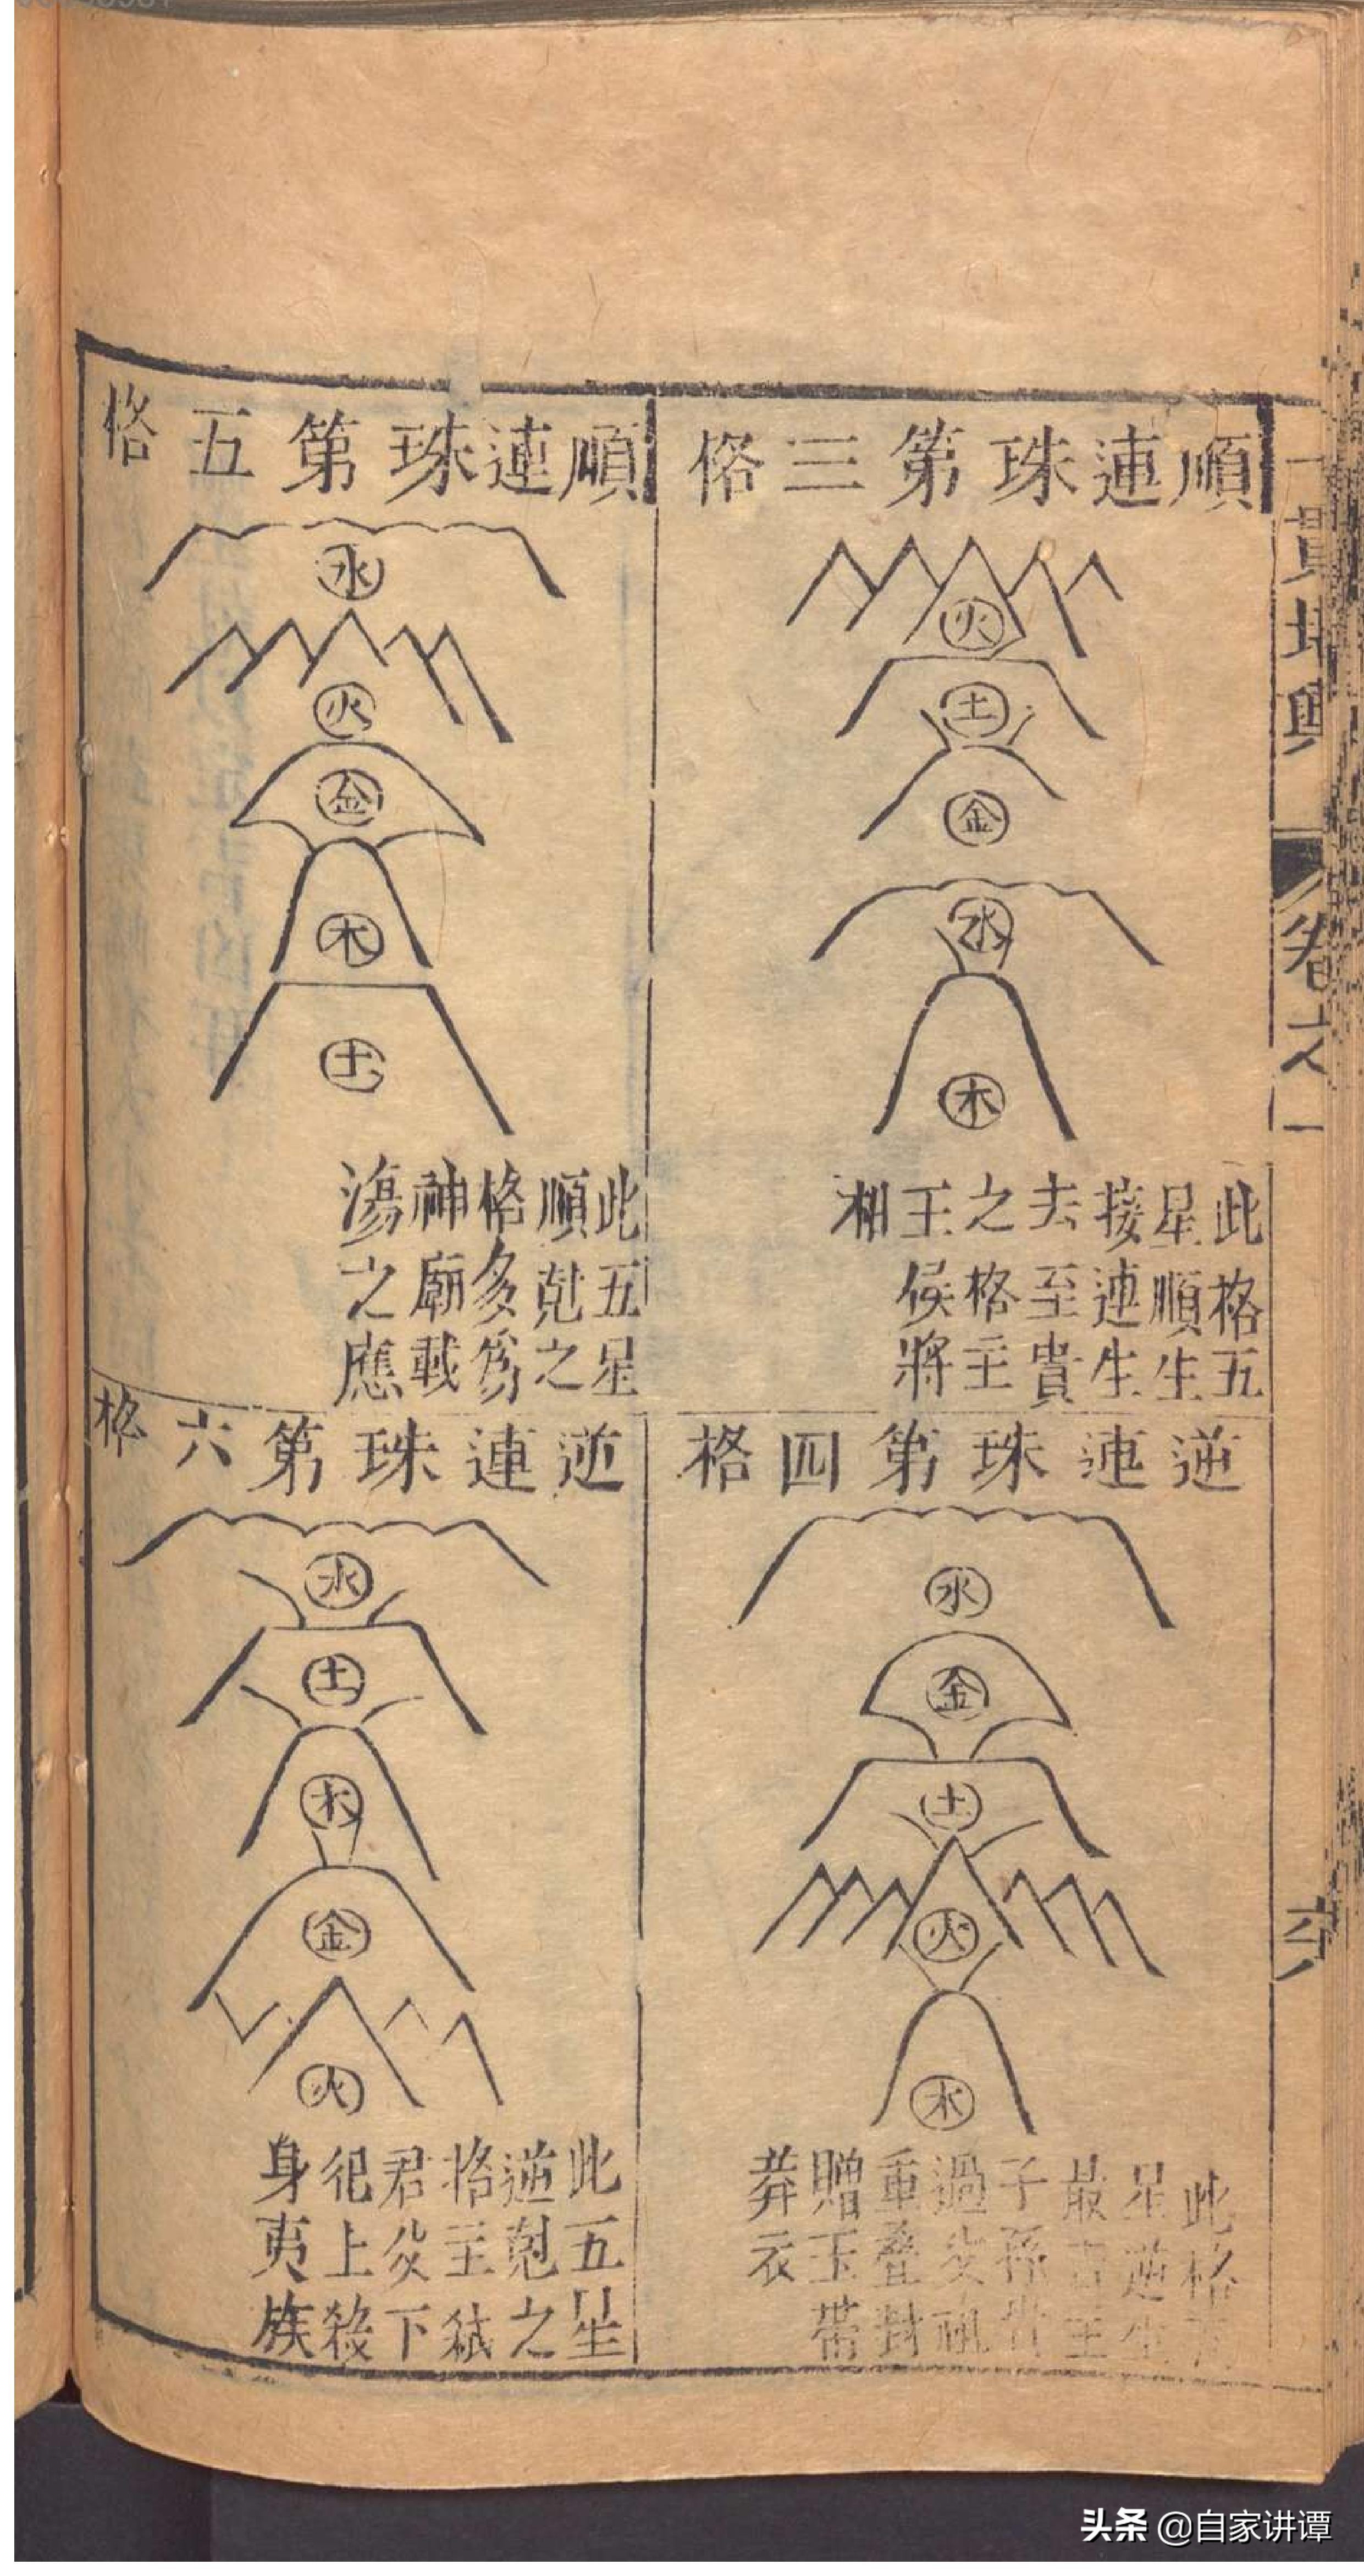 一貫堪輿
卷六
六
順連珠第三格
火
土
金
水
木
此格五
星順生
接連生
去至貴
之格主
王候將
相
逆連珠第四格
水
金
土
火
木
此格
星逆生
最吉主
子孫貴
過父祖
重叠封
贈玉帶
莽衣
順連珠第五格
水
火
金
木
土
此五星
順尅之
格多爲
神廟載
蕩之應
逆連珠第六格
水
土
木
金
火
此五星
逆尅之
格主弑
君父下
犯上殺
身夷族
头条 @自家讲谭